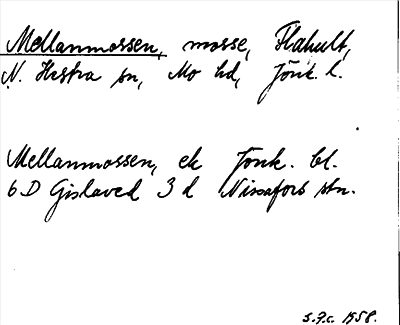 Mellanmossen, mosse, Flahult,
N. Hestra sn, Mo hd, Jönk. l.
Mellanmossen, ek Jönk. bl.
6D Gislaved 3 d Nissafors stn.
S.F.c. 1958.